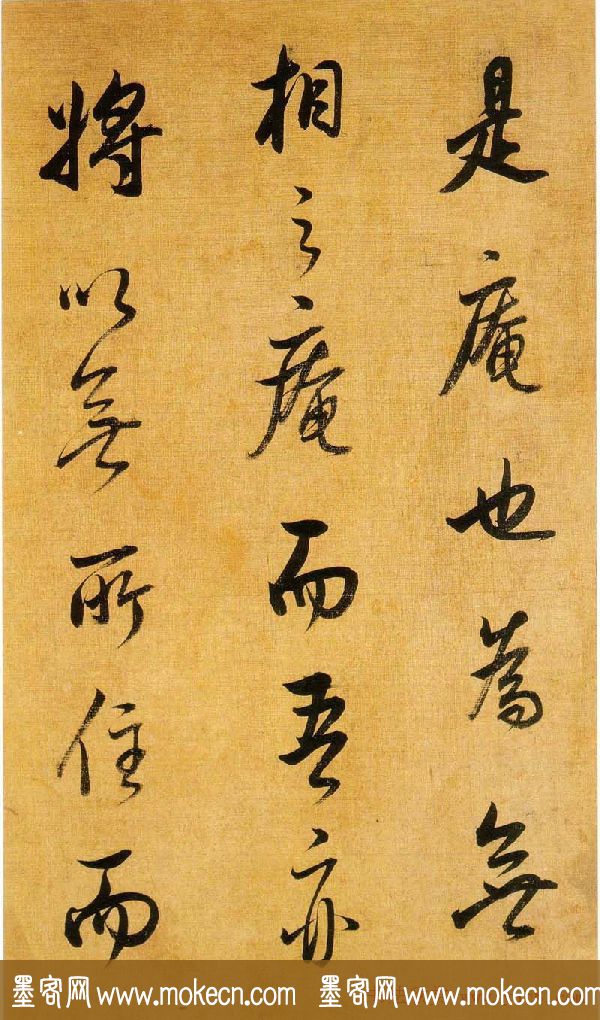 是庵也為無
相之庵而吾亦
將以無所住而
墨客网 www.mokecn.com 墨客网 www.mokecn.com